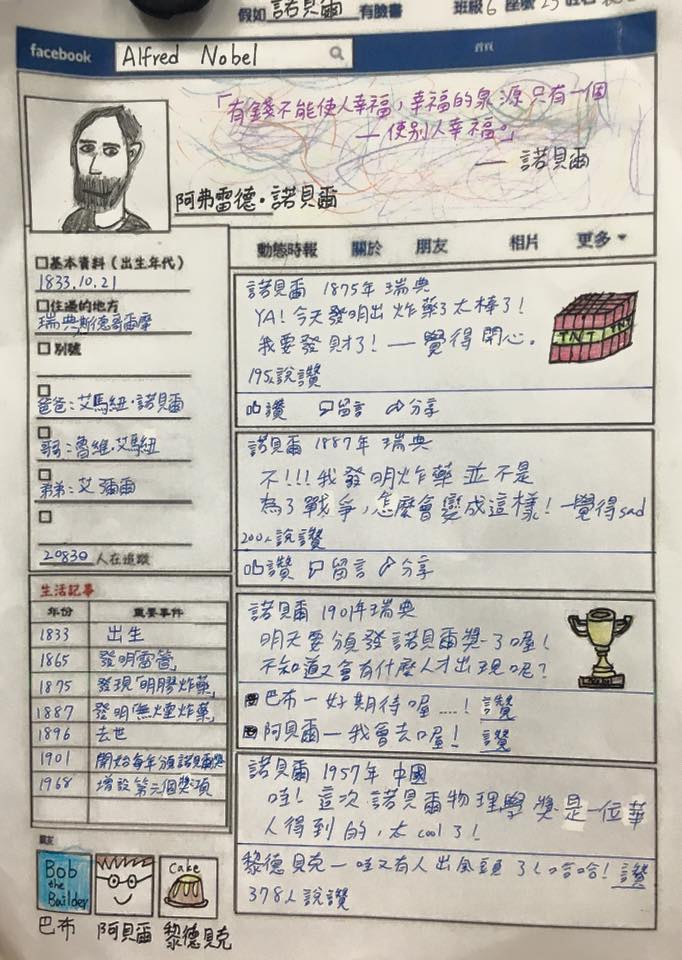 假如 諾貝爾 有臉書
班級6 座號
facebook Alfred Nobel 首頁
「有錢不能使人幸福，幸福的泉源只有一個
—使別人幸福。」
— 諾貝爾
阿弗雷德·諾貝爾
□基本資料（出生年代）
1833.10.21
□住過的地方
瑞典斯德哥爾摩
□別號
□
爸爸：艾馬紐·諾貝爾
□
哥哥：魯維·艾馬紐
□
弟弟：艾彌爾
□
20830 人在追蹤
生活記事
年份 重要事件
1833 出生
1865 發明雷管
1875 發現「明膠炸藥」
1887 發明「無煙炸藥」
1896 去世
1901 開始每年頒諾貝爾獎
1968 增設第六個獎項
Bob the Builder
Cake
巴布 阿貝爾 黎德貝克
動態時報 關於 朋友 相片 更多
諾貝爾 1875年 瑞典
YA！今天發明出炸藥了太棒了！
我要發財了！— 覺得開心。
TNT TNT
195人說讚
讚 留言 分享
諾貝爾 1887年 瑞典
不!!!我發明炸藥並不是
為了戰爭，怎麼會變成這樣！—覺得sad
200人說讚
讚 留言 分享
諾貝爾 1901年瑞典
明天要頒發諾貝爾獎了喔！
不知道又會有什麼人才出現呢？
巴布—好期待喔....！ 讚
阿貝爾—我會去喔！ 讚
諾貝爾 1957年 中國
哇！這次諾貝爾物理學獎是一位華
人得到的，太cool了！
黎德貝克—哇又有人出風頭了！哈哈！讚
378人說讚